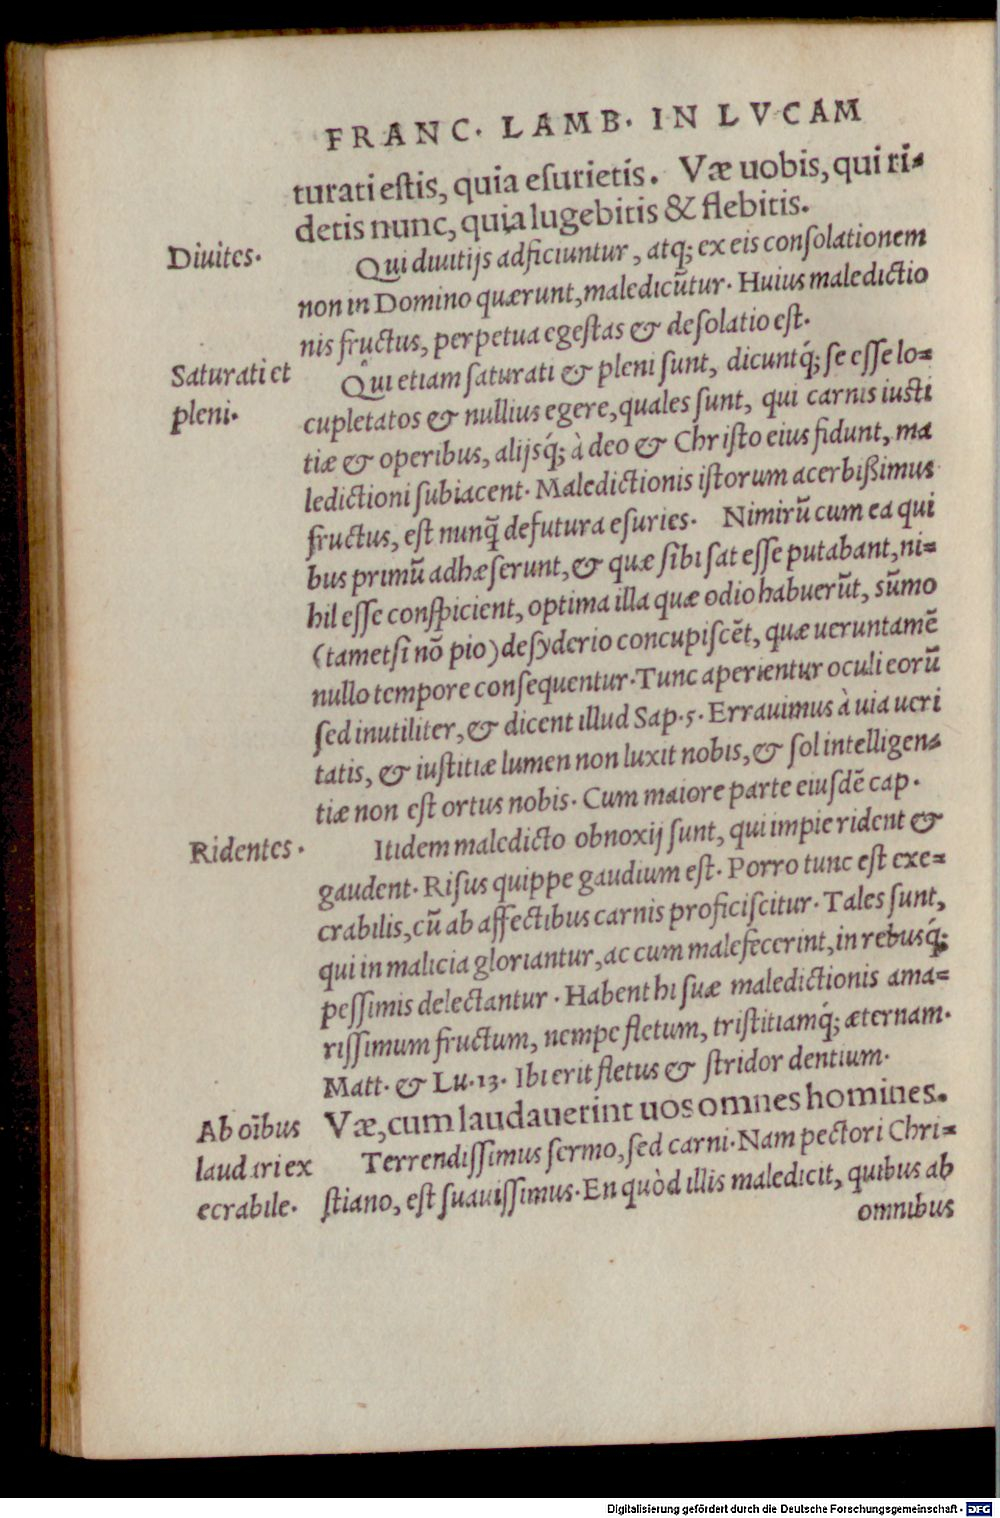 FRANC. LAMB. IN LVCAM
turati estis, quia esurietis. Væ uobis, qui ri-
detis nunc, quia lugebitis & flebitis.
Diuites.
Qui diuitijs adficiuntur, atq; ex eis consolationem
non in Domino quærunt, maledicũtur. Huius maledictio
nis fructus, perpetua egestas & desolatio est.
Saturati et
pleni.
Qui etiam saturati & pleni sunt, dicuntq́; se esse lo-
cupletatos & nullius egere, quales sunt, qui carnis iusti
tiæ & operibus, alijsq́; à deo & Christo eius fidunt, ma
ledictioni subiacent. Maledictionis istorum acerbißimus
fructus, est nunq̃ defutura esuries. Nimirũ cum ea qui
bus primũ adhæserunt, & quæ sibi sat esse putabant, ni-
hil esse conspicient, optima illa quæ odio habuerũt, sũmo
(tametsi nõ pio) desyderio concupiscẽt, quæ ueruntamẽ
nullo tempore consequentur. Tunc aperientur oculi eorũ
sed inutiliter, & dicent illud Sap. 5. Errauimus à uia ueri
tatis, & iustitiæ lumen non luxit nobis, & sol intelligen-
tiæ non est ortus nobis. Cum maiore parte eiusdẽ cap.
Ridentes.
Itidem maledicto obnoxij sunt, qui impie rident &
gaudent. Risus quippe gaudium est. Porro tunc est exe-
crabilis, cũ ab affectibus carnis proficiscitur. Tales sunt,
qui in malicia gloriantur, ac cum malefecerint, in rebusq́;
pessimis delectantur. Habent hi suæ maledictionis ama-
rissimum fructum, nempe fletum, tristitiamq́; æternam.
Matt. & Lu. 13. Ibi erit fletus & stridor dentium.
Væ, cum laudauerint uos omnes homines.
Ab oĩbus
laudari ex
ecrabile.
Terrendissimus sermo, sed carni. Nam pectori Chri-
stiano, est suauissimus. En quòd illis maledicit, quibus ab
omnibus
Digitalisierung gefördert durch die Deutsche Forschungsgemeinschaft - DFG